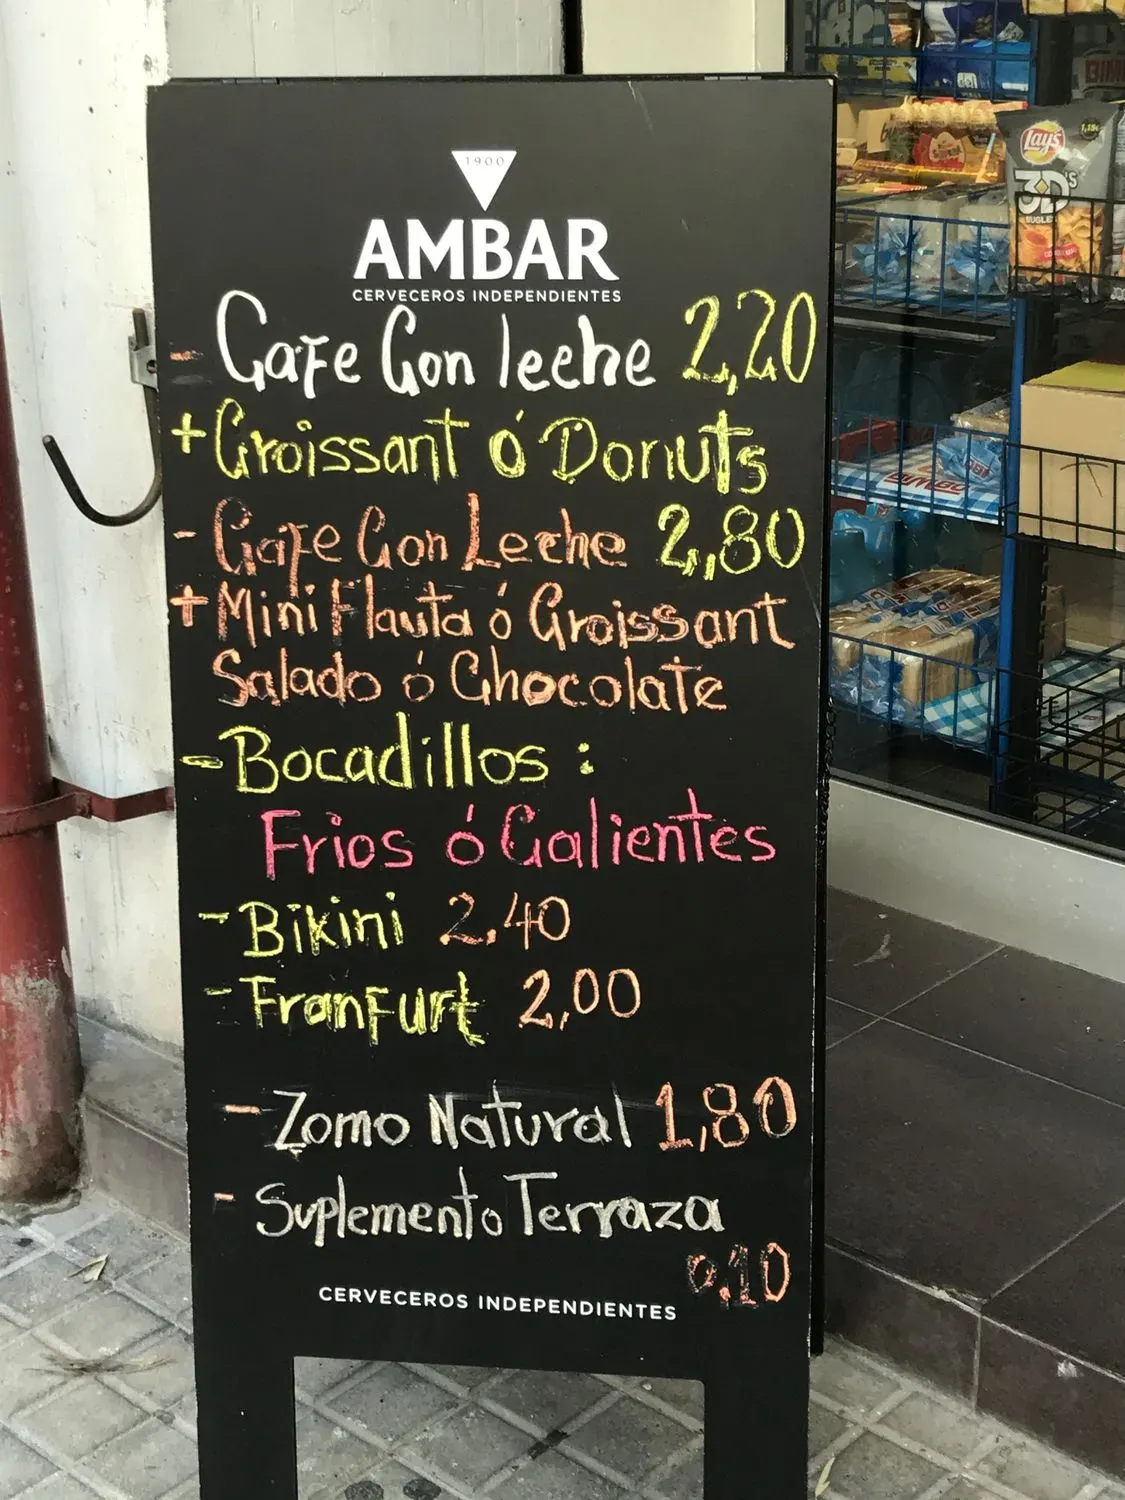 1900
AMBAR
CERVECEROS INDEPENDIENTES
- Cafe Con leche 2,20
+ Croissant ó Donuts
- Cafe Con Leche 2,80
+ Mini Flauta ó Croissant
Salado ó Chocolate
- Bocadillos :
Frios ó Calientes
- Bikini 2,40
- Franfurt 2,00
- Zomo Natural 1,80
- Suplemento Terraza
0,10
CERVECEROS INDEPENDIENTES
Lay's
3D's
BUGLES
BIMBO